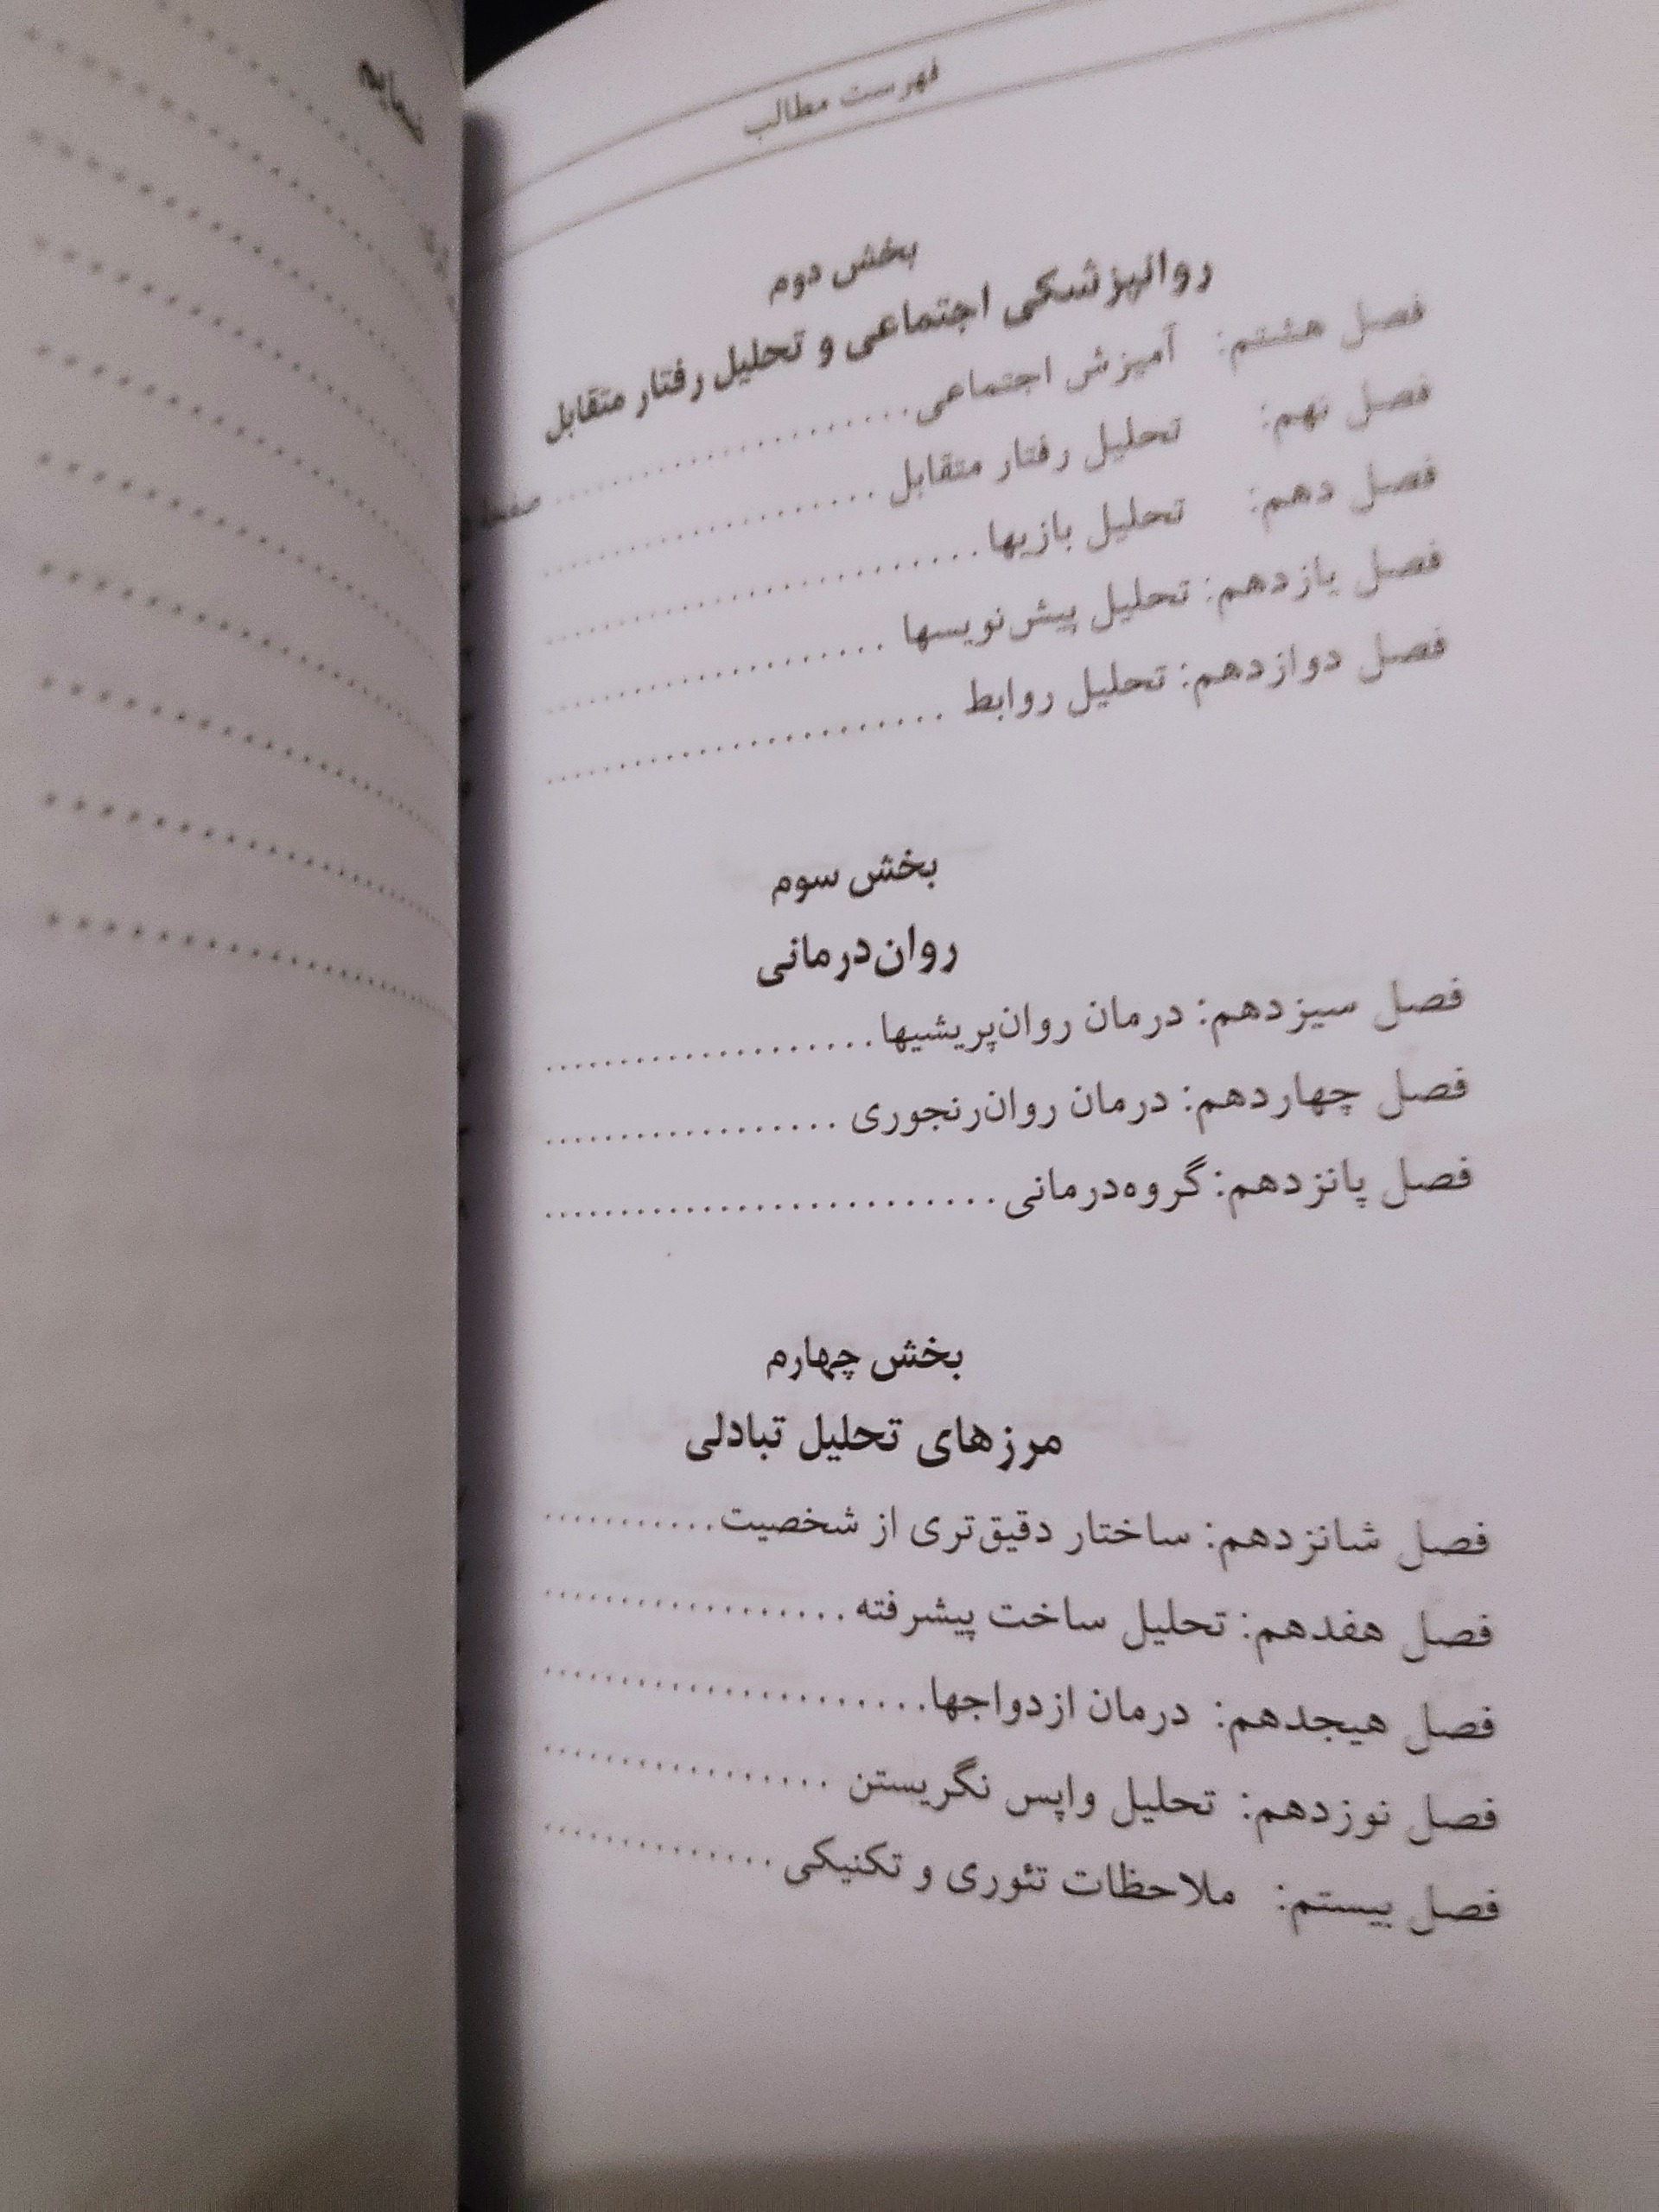 فهرست مطالب
بخش دوم
روانپزشکی اجتماعی و تحلیل رفتار متقابل
فصل هشتم: آمیزش اجتماعی .................... صفحه
فصل نهم: تحلیل رفتار متقابل ....................
فصل دهم: تحلیل بازیها ....................
فصل یازدهم: تحلیل پیش‌نویسها ....................
فصل دوازدهم: تحلیل روابط ....................
بخش سوم
روان‌درمانی
فصل سیزدهم: درمان روان‌پریشیها ....................
فصل چهاردهم: درمان روان‌رنجوری ....................
فصل پانزدهم: گروه‌درمانی ....................
بخش چهارم
مرزهای تحلیل تبادلی
فصل شانزدهم: ساختار دقیق‌تری از شخصیت ...........
فصل هفدهم: تحلیل ساخت پیشرفته ....................
فصل هیجدهم: درمان ازدواجها ....................
فصل نوزدهم: تحلیل واپس نگریستن ................
فصل بیستم: ملاحظات تئوری و تکنیکی .............